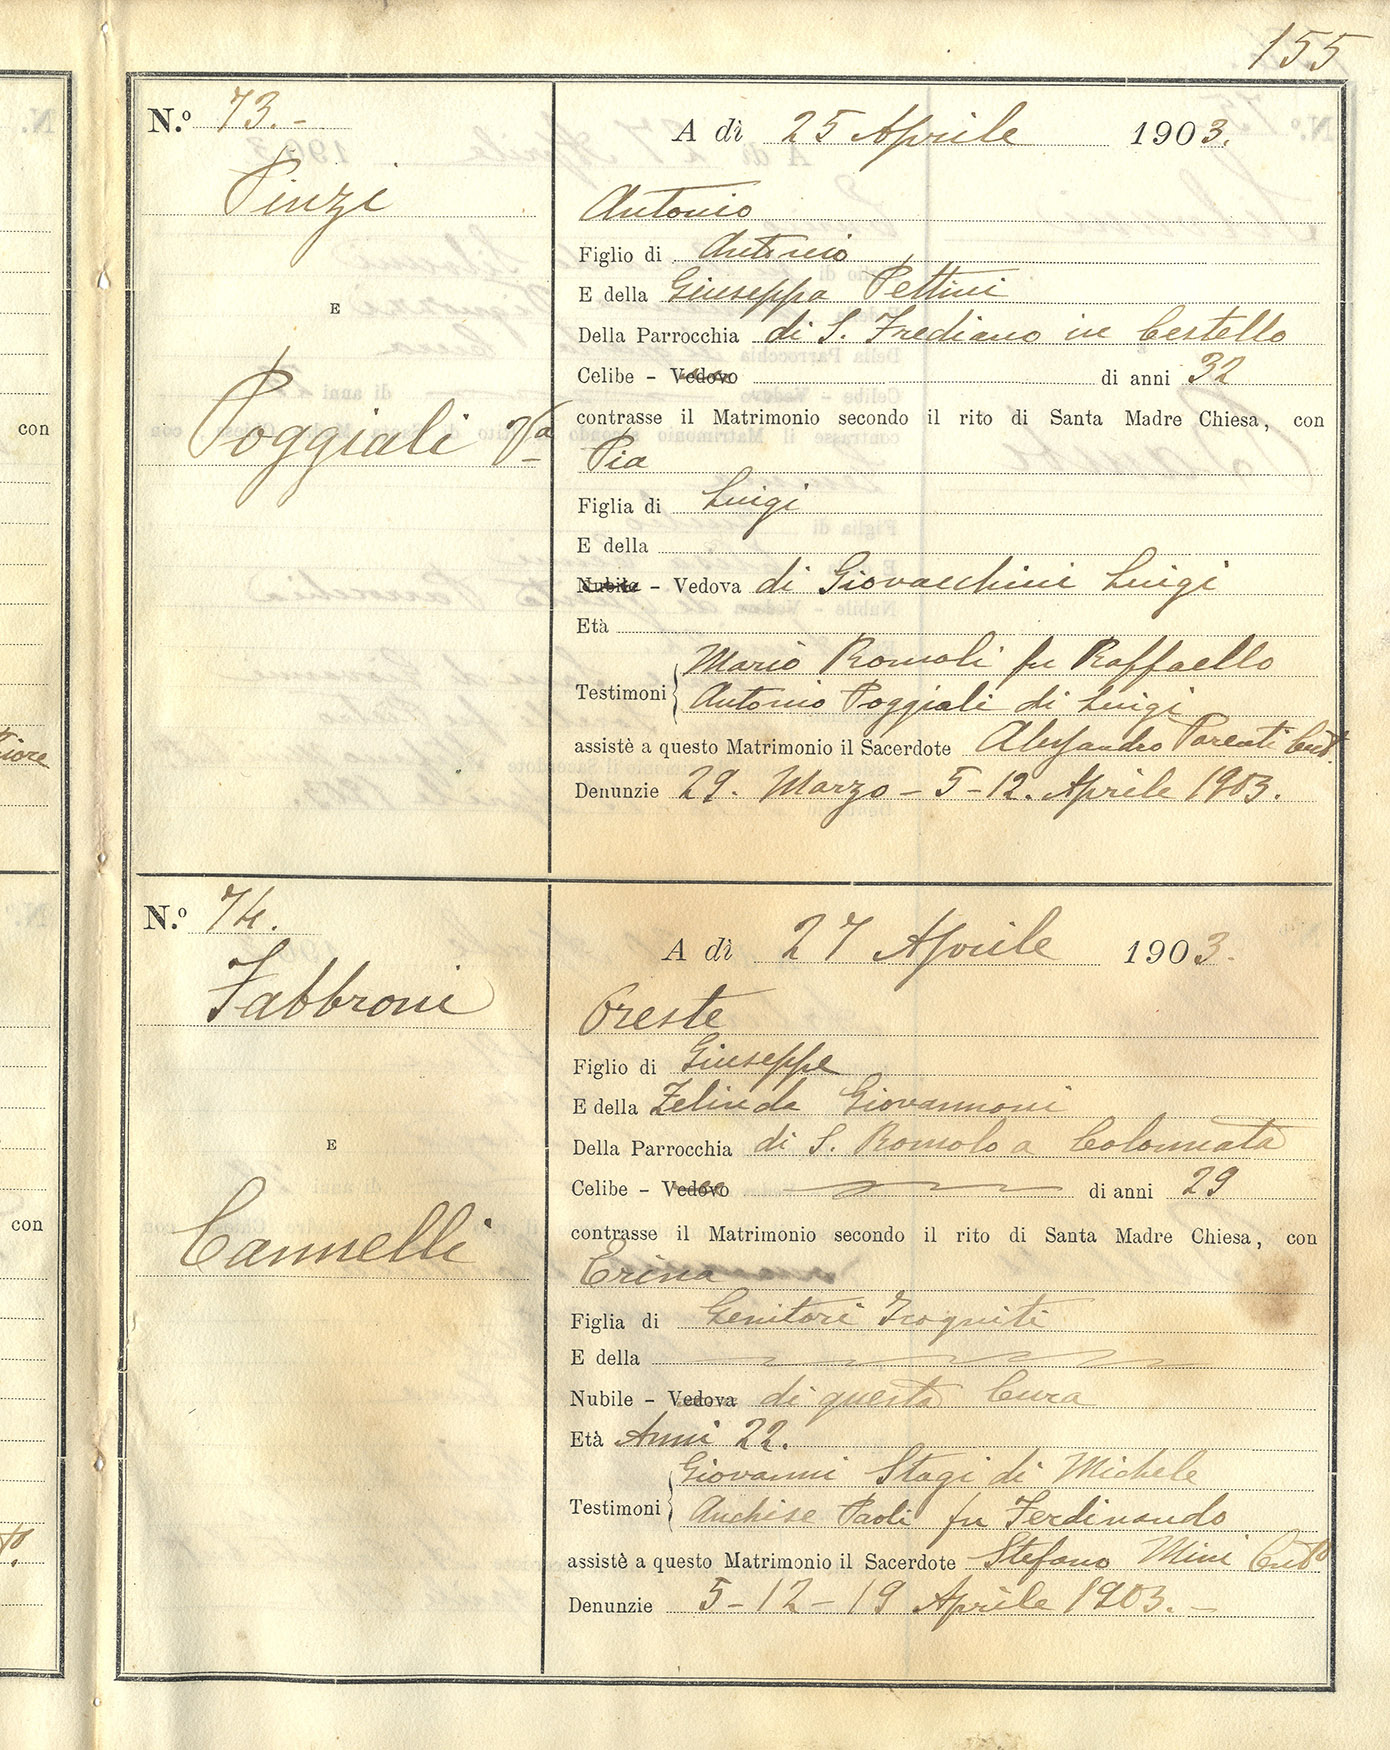 155
N.º 73.-
Pinzi
E
Poggiali Vª
A dì 25 Aprile 1903.
Antonio
Figlio di Antonio
E della Giuseppa Pettini
Della Parrocchia di S. Frediano in Cestello
Celibe - Vedovo di anni 32
contrasse il Matrimonio secondo il rito di Santa Madre Chiesa, con
Pia
Figlia di Luigi
E della
Nubile - Vedova di Giovacchini Luigi
Età
Mario Romoli fu Raffaello
Testimoni
Antonio Poggiali di Luigi
assistè a questo Matrimonio il Sacerdote Alessandro Parenti
Denunzie 29. Marzo - 5-12. Aprile 1903.
N.º 74.
Fabbroni
E
Cannelli
A dì 27 Aprile 1903.
Oreste
Figlio di Giuseppe
E della Zelinda Giovannoni
Della Parrocchia di S. Romolo a Colonnata
Celibe - Vedovo di anni 29
contrasse il Matrimonio secondo il rito di Santa Madre Chiesa, con
Erina
Figlia di Genitori Icogniti
E della
Nubile - Vedova di questa Cura
Età Anni 22.
Giovanni Stagi di Michele
Testimoni
Anchise Paoli fu Ferdinando
assistè a questo Matrimonio il Sacerdote Stefano Mini
Denunzie 5-12-19 Aprile 1903.-
con
con